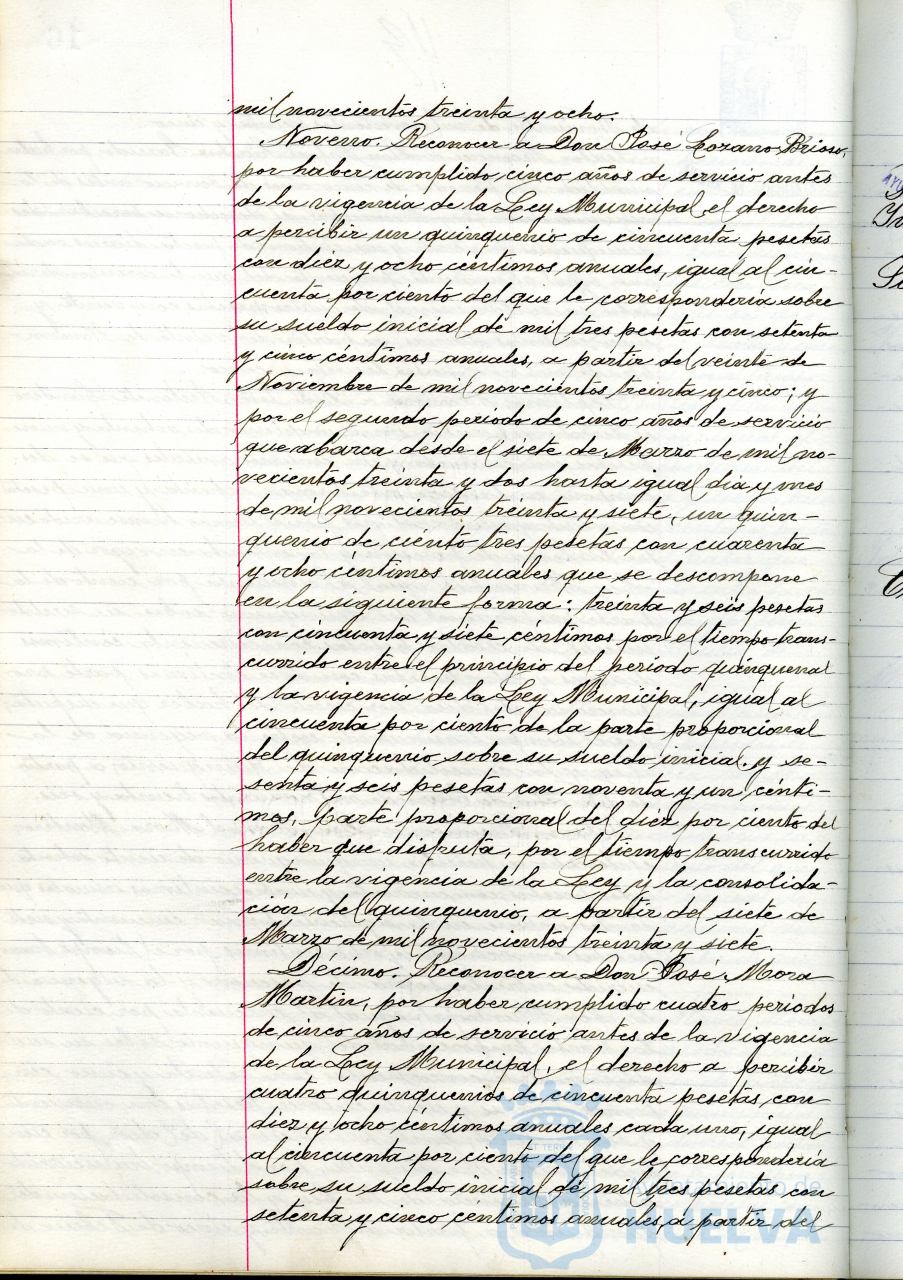 mil novecientos treinta y ocho.
Noveno. Reconocer a Don José Lozano Brioso,
por haber cumplido cinco años de servicio antes
de la vigencia de la Ley Municipal, el derecho
a percibir un quinquenio de cincuenta pesetas
con diez y ocho céntimos anuales, igual al cin-
cuenta por ciento del que le correspondería sobre
su sueldo inicial de mil tres pesetas con setenta
y cinco céntimos anuales, a partir del veinte de
Noviembre de mil novecientos treinta y cinco; y
por el segundo período de cinco años de servicio
que abarca desde el siete de Marzo de mil no-
vecientos treinta y dos hasta igual día y mes
de mil novecientos treinta y siete, un quin-
quenio de ciento tres pesetas con cuarenta
y ocho céntimos anuales que se descompone
en la siguiente forma: treinta y seis pesetas
con cincuenta y siete céntimos por el tiempo trans-
currido entre el principio del período quinquenal
y la vigencia de la Ley Municipal, igual al
cincuenta por ciento de la parte proporcional
del quinquenio sobre su sueldo inicial. y se-
senta y seis pesetas con noventa y un cénti-
mos, parte proporcional del diez por ciento del
haber que disfruta, por el tiempo transcurrido
entre la vigencia de la Ley y la consolida-
ción del quinquenio, a partir del siete de
Marzo de mil novecientos treinta y siete.
Décimo. Reconocer a Don José Mora
Martin, por haber cumplido cuatro períodos
de cinco años de servicio antes de la vigencia
de la Ley Municipal, el derecho a percibir
cuatro quinquenios de cincuenta pesetas con
diez y ocho céntimos anuales cada uno, igual
al cincuenta por ciento del que le correspondería
sobre su sueldo inicial de mil tres pesetas con
setenta y cinco centimos anuales, a partir del
Ayuntamiento de
HUELVA